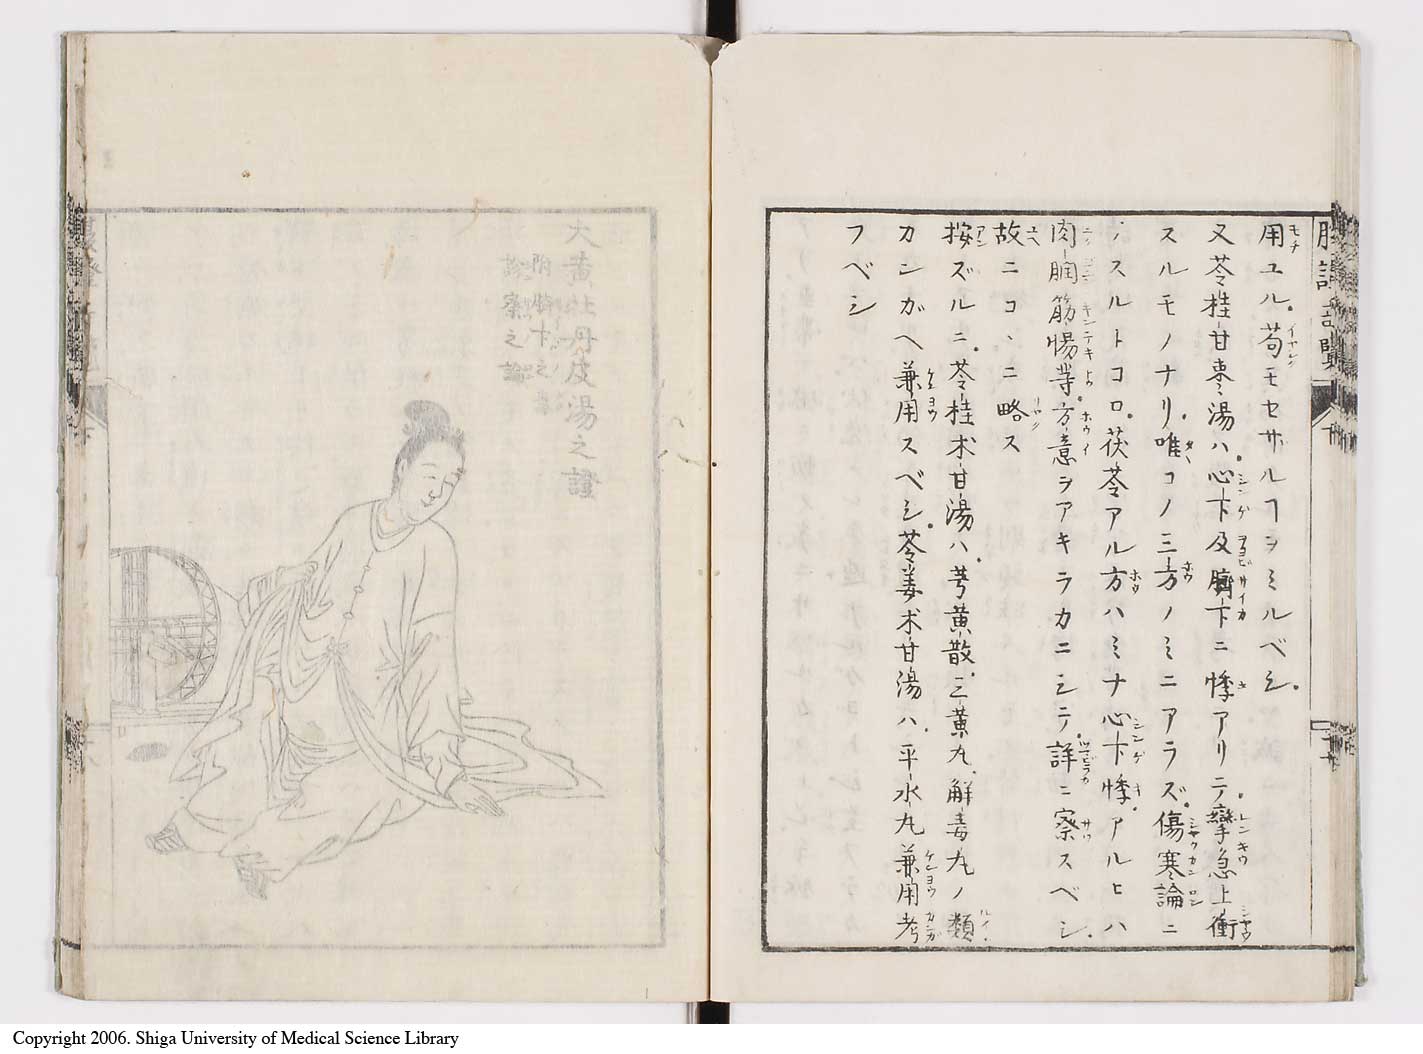 用ユル。苟モセサルヿヲミルベシ。
又苓桂甘棗湯ハ。心下及臍下ニ悸アリテ。攣急上衝
スルモノナリ。唯コノ三方ノミニアラズ。傷寒論ニ
ノスルトコロ。茯苓アル方ハミナ心下悸。アルヒハ
肉瞤筋惕等。方意ヲアキラカニシテ。詳ニ察スベシ。
故ニコヽニ略ス
按ズルニ。苓桂朮甘湯ハ。芎黄散。三黄丸。解毒丸ノ類。
カンガヘ兼用スベシ。苓姜朮甘湯ハ。平水丸兼用考
フベシ
大黄牡丹皮湯之證
診察之論
Copyright 2006. Shiga University of Medical Science Library